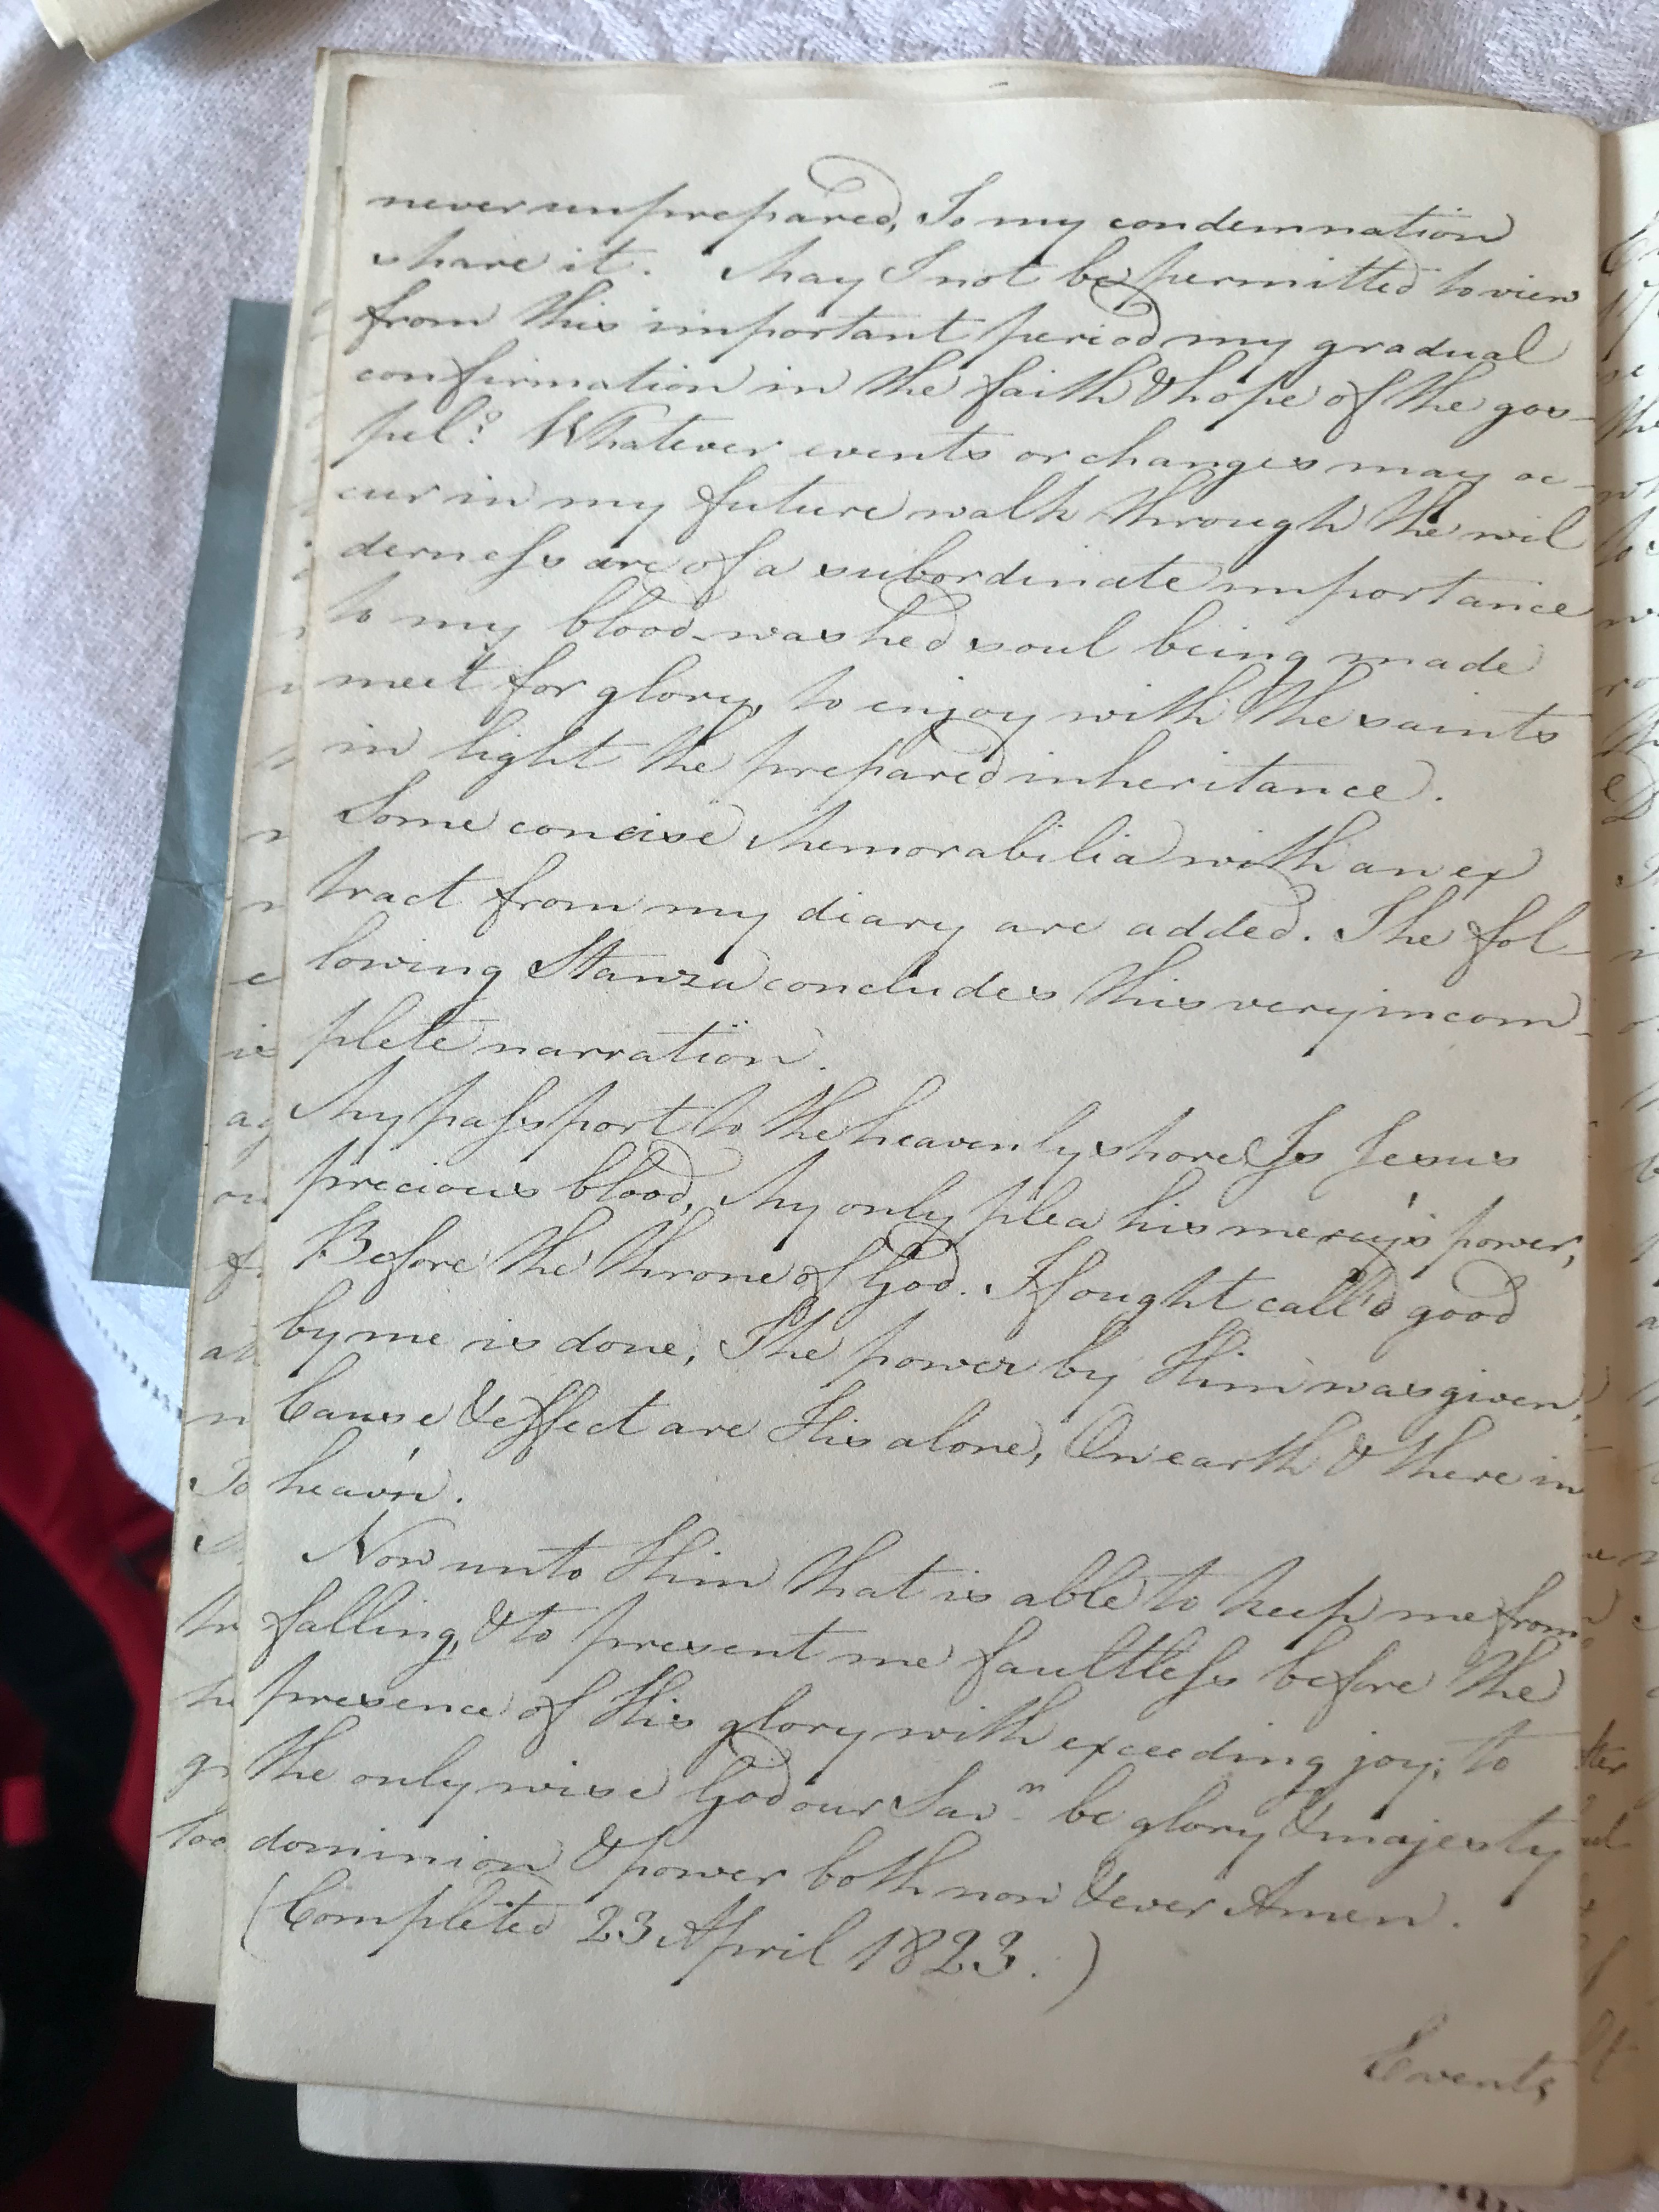 never unprepared, To my condemnation
share it. May I not be permitted to view
from this important period my gradual
confirmation in the faith & hope of the gos-
pel? Whatever events or changes may oc-
cur in my future walk through the wil
derneſs are of a subordinate importance
to my blood-washed soul being made
meet for glory, to enjoy with the saints
in light the prepared inheritance.
Some concise Memorabilia with an ex
tract from my diary are added. The fol-
lowing Stanza concludes this very incom-
plete narration.
My paſsport to the heavenly shore Is Jesus
precious blood, My only plea his mercy's power,
Before the throne of God. If ought call'd good
by me is done, The power by Him was given,
Cause & effect are His alone, On earth & there in
heav'n.
Now unto Him that is able to keep me from
falling, & to present me faultleſs before the
presence of His glory with exceeding joy; to
the only wise God our Savr be glory & majesty
dominion & power both now & ever Amen.
(Completed 23 April 1823.)
Events